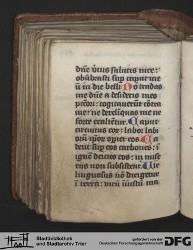 dñe virtus salutis mee:
obūbrasti sup caput me
ū in die belli No tradas
me dñe a desiderio meo
pctori: cogitauerūt contra
me: ne derelinquas me ne
forte exaltētur Caput
circuitus eor: labor labio
rū ipsor operiet eos Ca
dent sup eos carbones: ī
ignē deicies eos: in mise
riis non subsistent Uir
linguosus nō dirigetur
ī terra: uirū iniustū ma
Stadtbibliothek
und Stadtarchiv Trier
gefördert von der
Deutschen Forschungsgemeinschaft
DFG